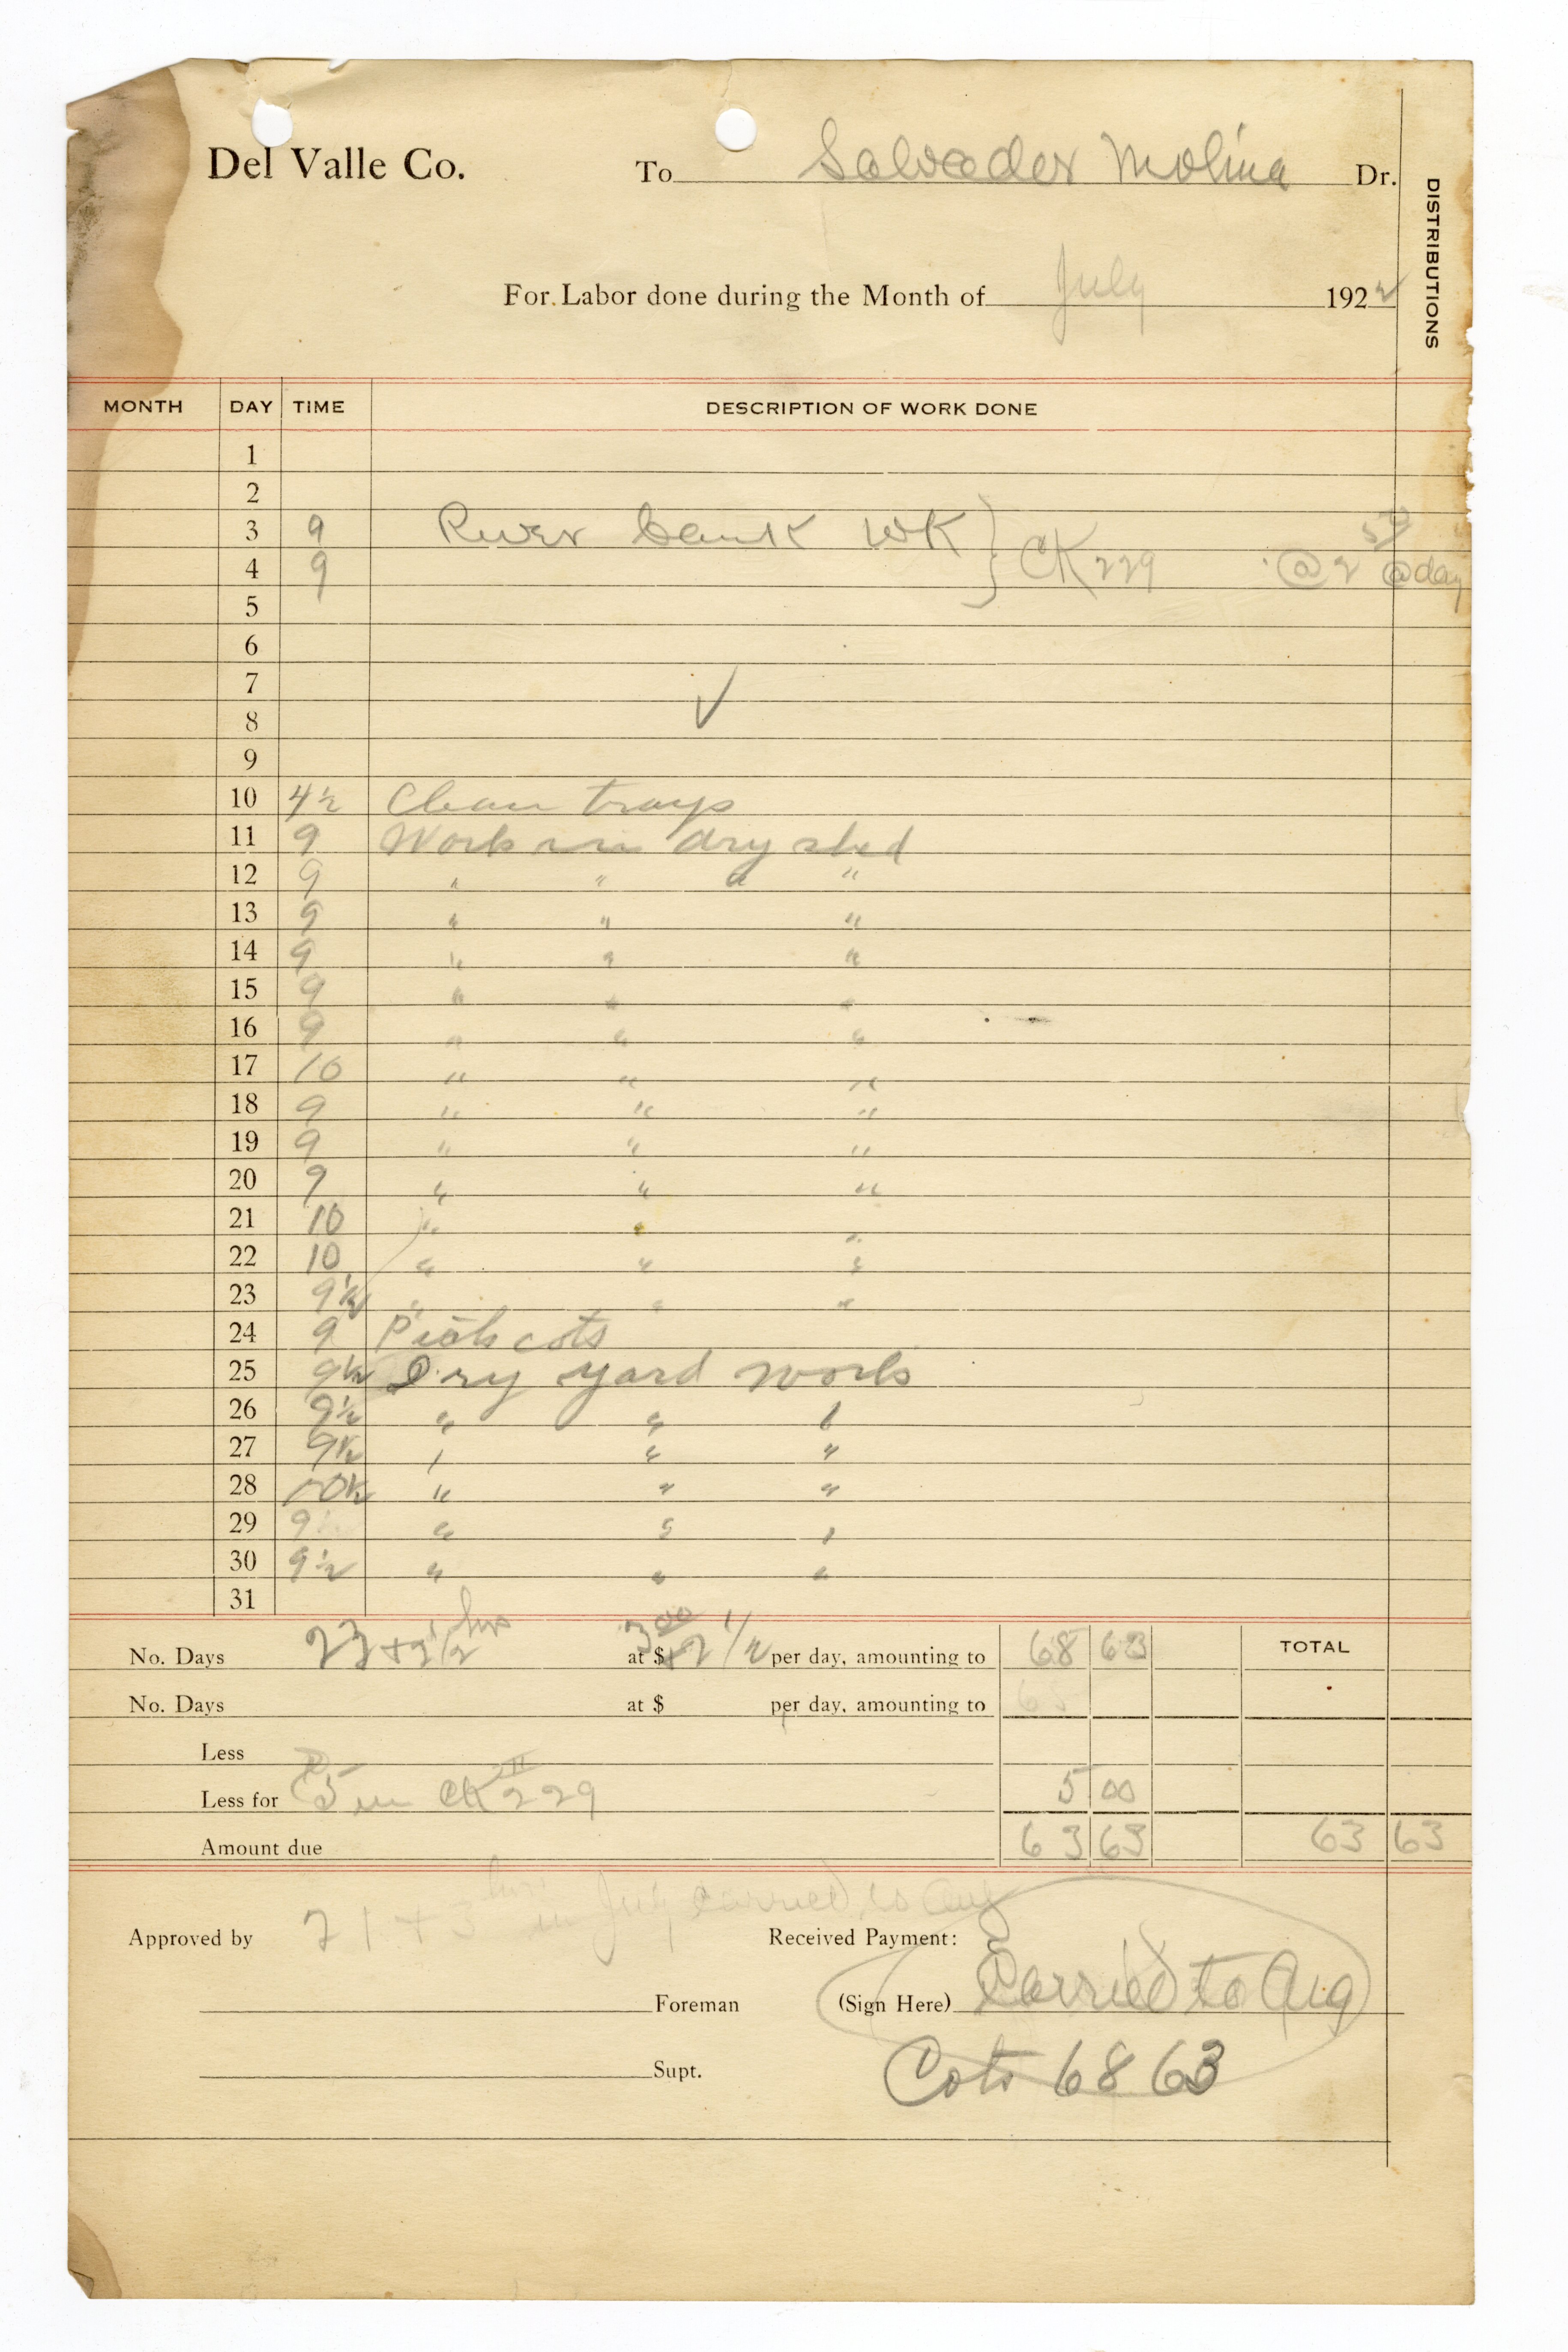 Del Valle Co. To Salvador Molina Dr.
DISTRIBUTIONS
For Labor done during the Month of July 1922
MONTH DAY TIME DESCRIPTION OF WORK DONE
1
2
3 9 River bank WK } CK 229 @ 2 50 @ day
4 9
5
6
7
8 ✓
9
10 4½ Clean trays
11 9 Work in dry shed
12 9 " " " "
13 9 " " "
14 9 " " "
15 9 " " "
16 9 " " "
17 10 " " "
18 9 " " "
19 9 " " "
20 9 " " "
21 10 " " "
22 10 " " "
23 9½ " " "
24 9 Pick cots
25 9½ Dry yard work
26 9½ " " "
27 9½ " " "
28 10½ " " "
29 9 " " "
30 9½ " " "
31
No. Days 23 + 2½ hrs at $ 3 00 per day, amounting to 68 63 TOTAL
No. Days at $ per day, amounting to
Less
Less for 5 in CK 229 5 00
Amount due 63 63 63 63
21 + 3 hrs in July carried to Aug
Approved by Received Payment:
Foreman (Sign Here) Carried to Aug
Supt. Cots 68 63